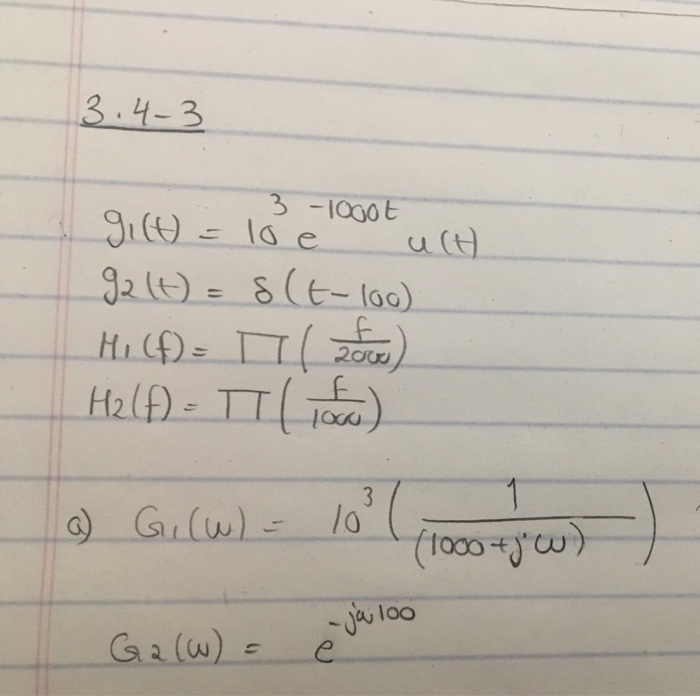 3.4-3
g₁(t) = 10³ e^(-1000t) u(t)
g₂(t) = δ(t-100)
H₁(f) = Π(f/2000)
H₂(f) = Π(f/1000)
a) G₁(ω) = 10³ (1/(1000+jω))
G₂(ω) = e^(-jω100)